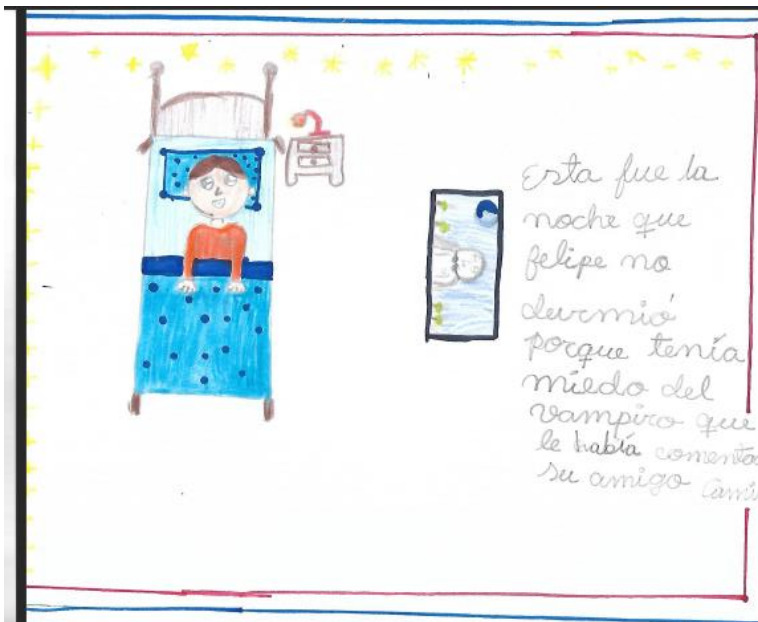 Esta fue la
noche que
felipe no
durmió
porque tenía
miedo del
vampiro que
le había
su amigo